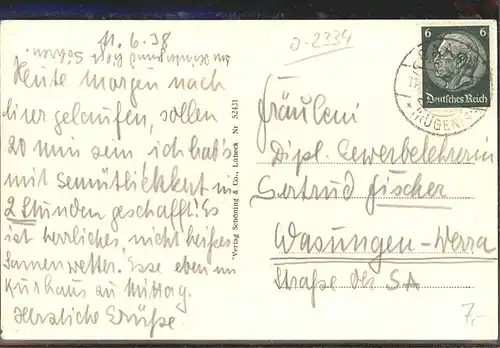 11.6.38
Heute morgen nach
hier gelaufen, sollen
20 min sein ich hab's
mit Gemütlichkeit in
2 Stunden geschafft! Es
ist herrliches, nicht heißes
Sonnenwetter. Esse eben im
Kurhaus zu Mittag.
Herzliche Grüße
"Verlag Schöning & Co., Lübeck Nr 52431
o-2334
6 6
Deutsches Reich
(RÜGEN)
Fräulein
Dipl. Gewerbelehrerin
Gertrud Fischer
Wasungen-Werra
Straße der SA
7,-